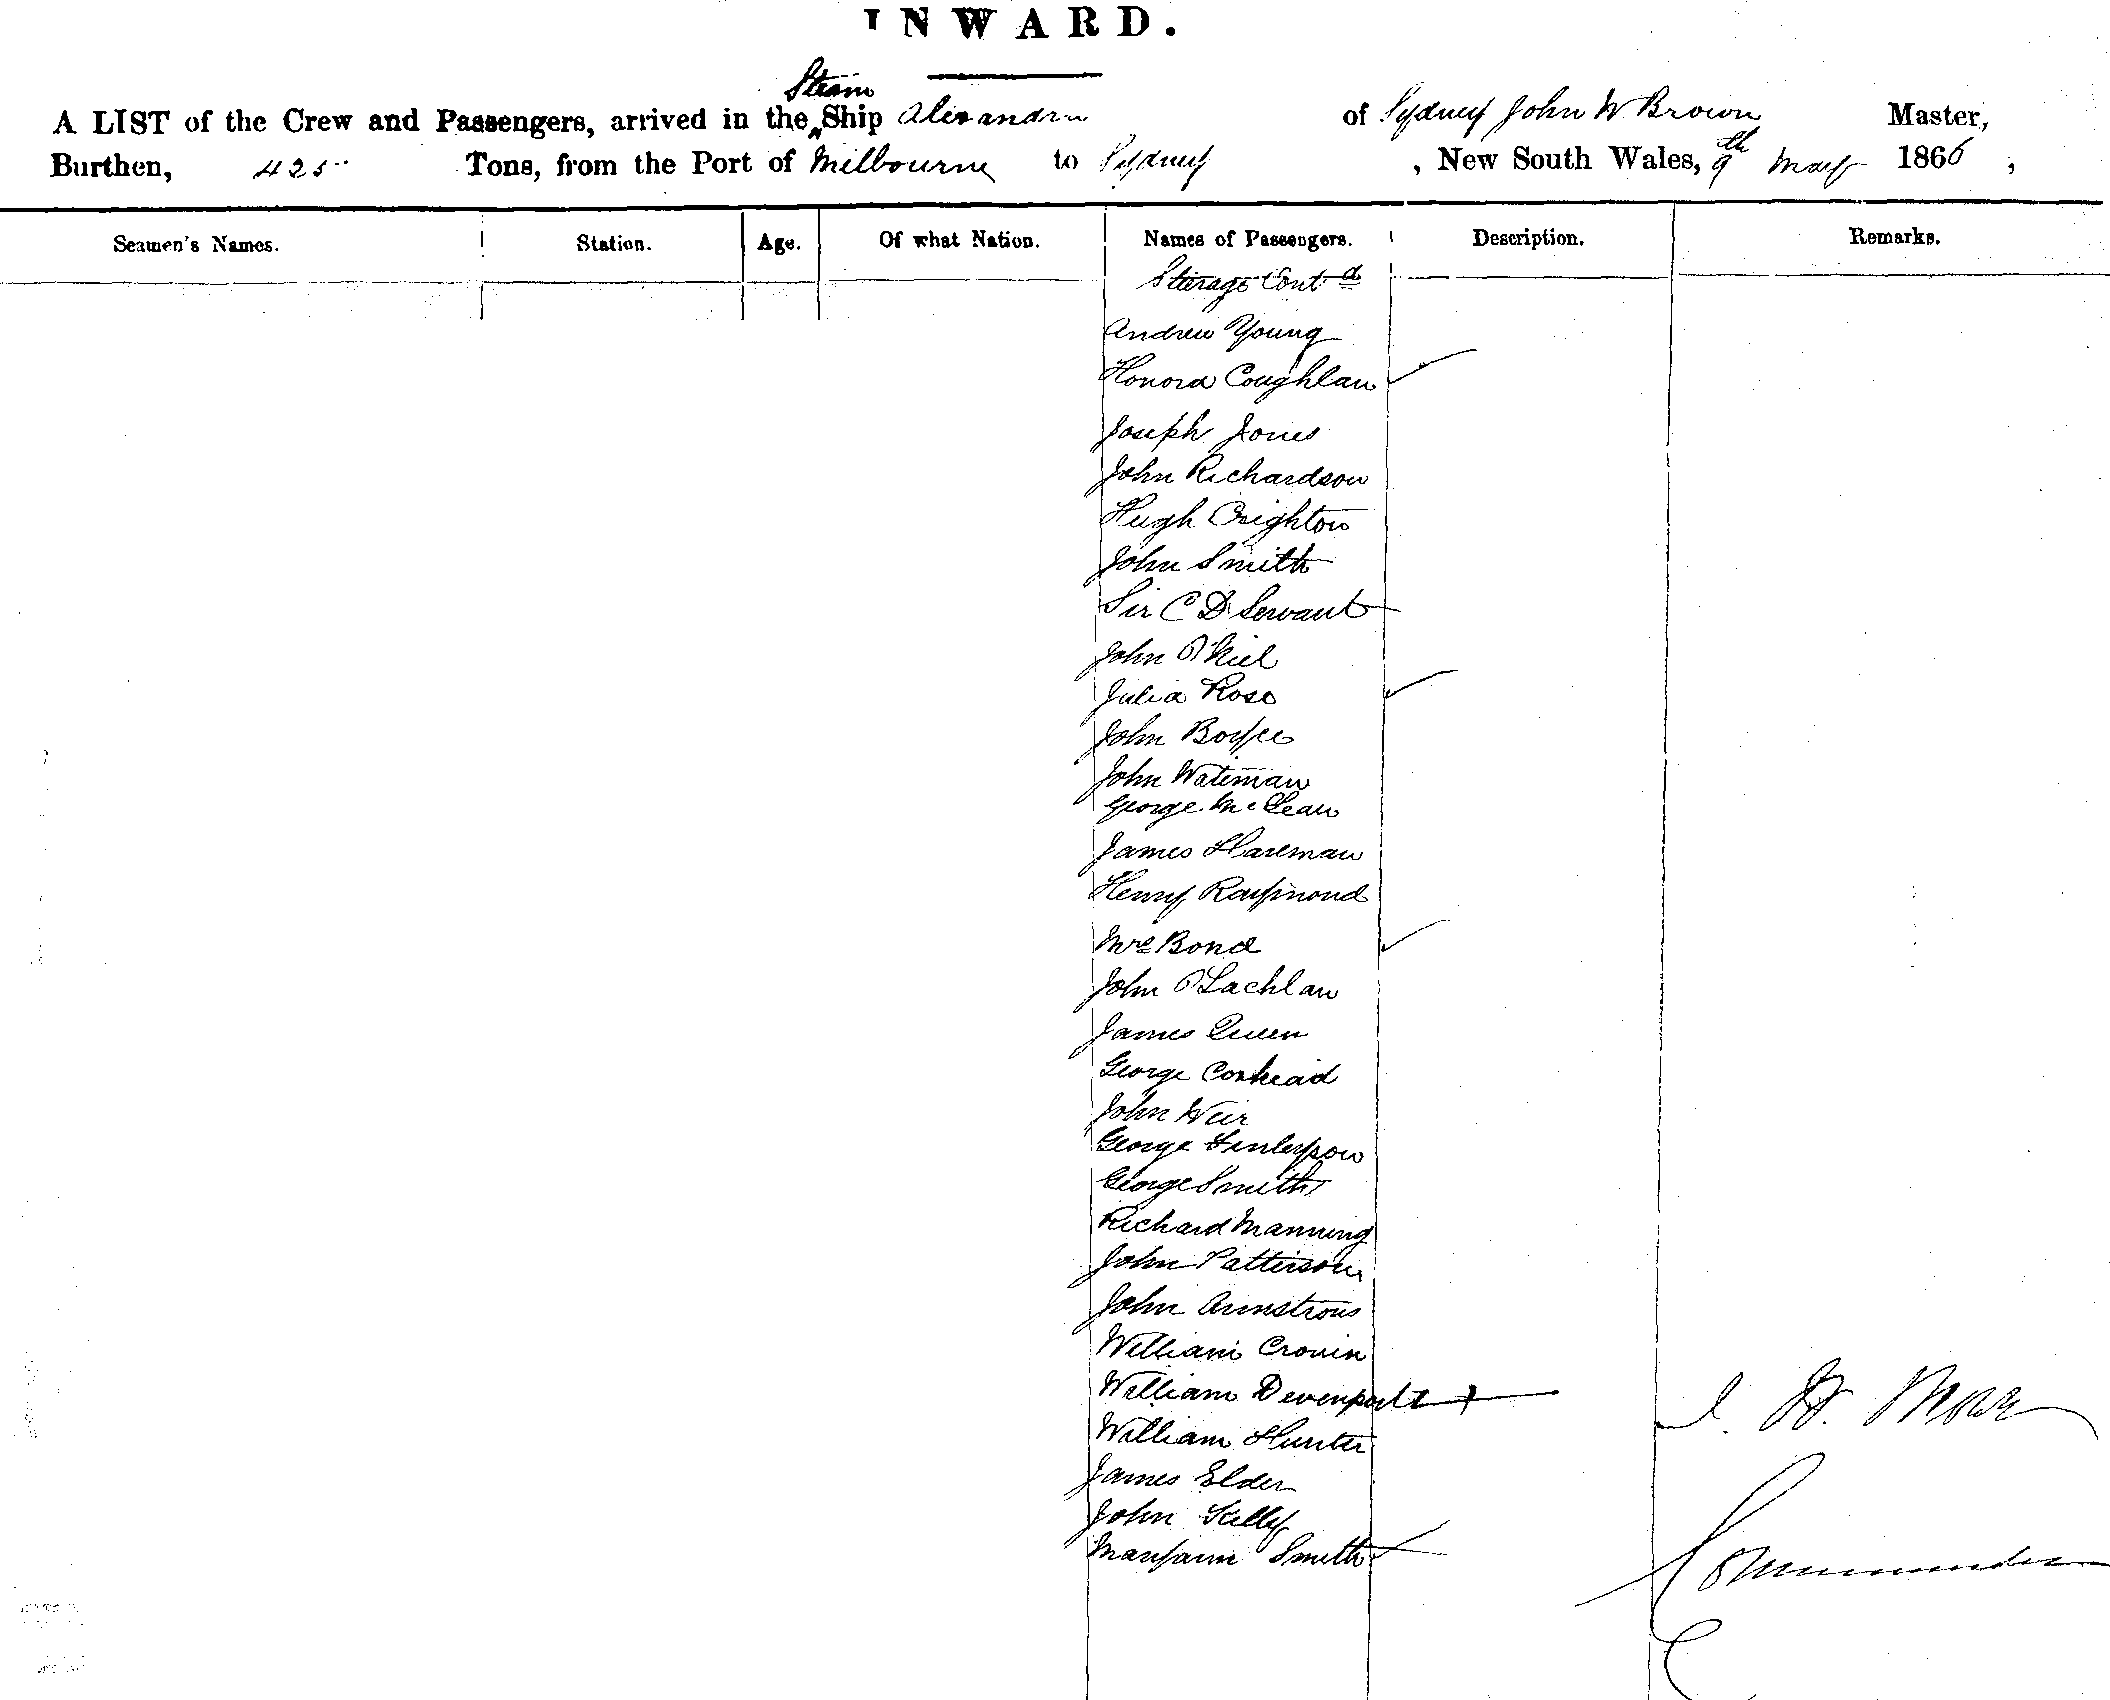 INWARD.
Steam
A LIST of the Crew and Passengers, arrived in the Ship Alexandra of Sydney John W Brown Master,
Burthen, 425 Tons, from the Port of Melbourne to Sydney, New South Wales, 9th May 1866,
Seamen's Names. Station. Age. Of what Nation. Names of Passengers. Description. Remarks.
Sterage Contd
Andrew Young
Honora Coughlan
Joseph Jones
John Richardson
Hugh Crighton
John Smith
Sir C D Servant
John O'Niel
Julia Rose
John Boyce
John Wateman
George McLean
James Hareman
Henry Raymond
Mrs Bond
John O'Lachlan
James Queen
George Conhead
John Weir
George Finlayson
George Smith
Richard Manning
John Patterson
John Armstrong
William Cronin
William Devenport
William Hunter
James Elder
John Kelly
Maryann Smith
Commander